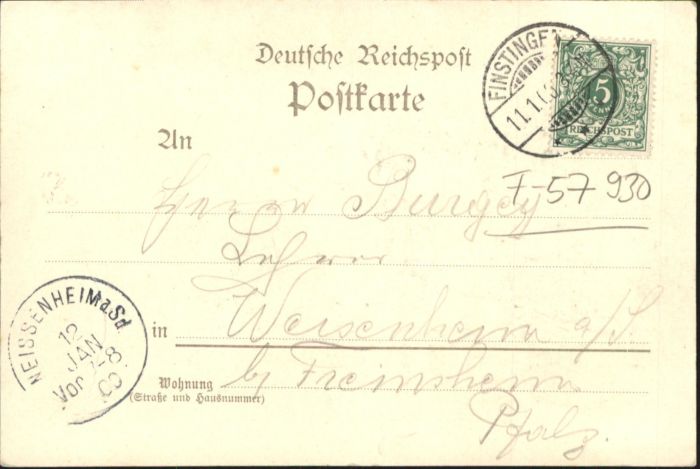 Deutsche Reichspost
Postkarte
FINSTINGEN
11.1.00
5
REICHSPOST
An
F-57 930
Herrn Burgey
Lehrer
in Weisenheim a/S.
b/ Freinsheim
Pfalz.
Wohnung
(Straße und Hausnummer)
WEISSENHEIM a.Sd.
12
JAN
Vor 7-8
00